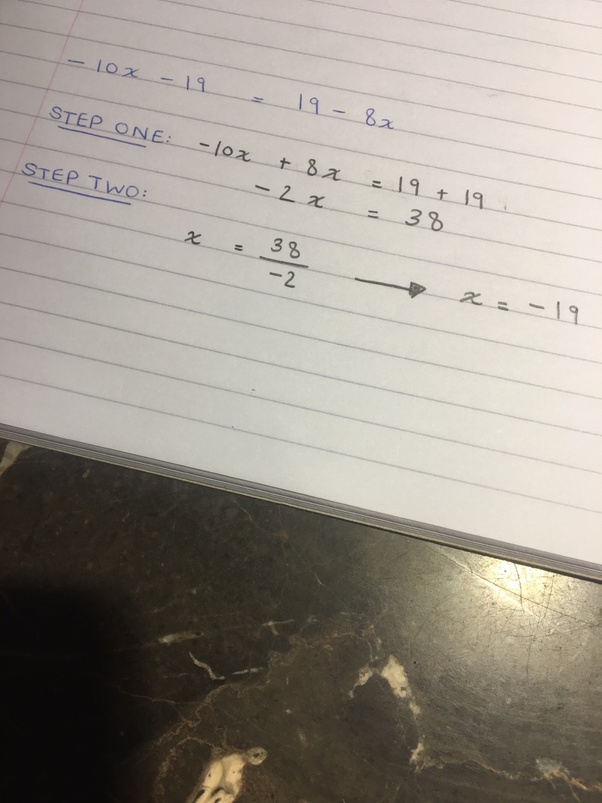 -10x - 19 = 19 - 8x
STEP ONE: -10x + 8x = 19 + 19
-2x = 38
STEP TWO:
x = 38/-2 → x = -19